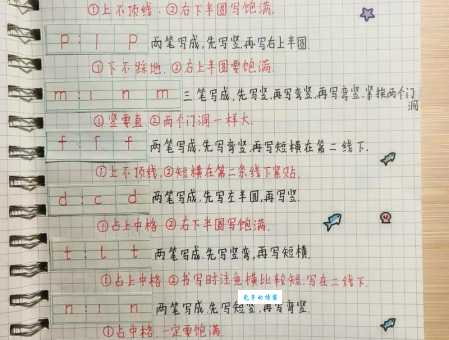 ①上不顶线 ②右下半圆写饱满.
p: l p 两笔写成,先写竖,再写右上半圆.
①下不踩地. ②右上半圆要饱满.
m: ı n m 三笔写成,先写竖,再写弯竖,再写弯竖,紧挨两个门洞
①竖要直 ②两个门洞一样大.
f: f f 两笔写成,先写弯竖,再写短横在第二线下.
①上不顶线,②短横在第二条线下紧贴.
d: c d 两笔写成,先写左半圆,再写竖.
①占上中格 ②右下半圆写饱满.
t: l t 两笔写成,先写竖弯,再写短横.
①占上中格 ②书写时注意横比较短,写在二线下.
n: ı n 两笔写成,先写短竖,再写弯竖
①占中格,一定要饱满